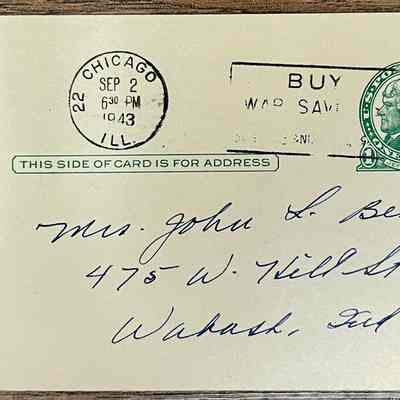 CHICAGO
SEP 2
6 30 PM
1943
22
ILL.
BUY
WAR SAV
U.S. PO
THIS SIDE OF CARD IS FOR ADDRESS
Mrs. John L. Be
475 W. Hill St
Wabash, Ind